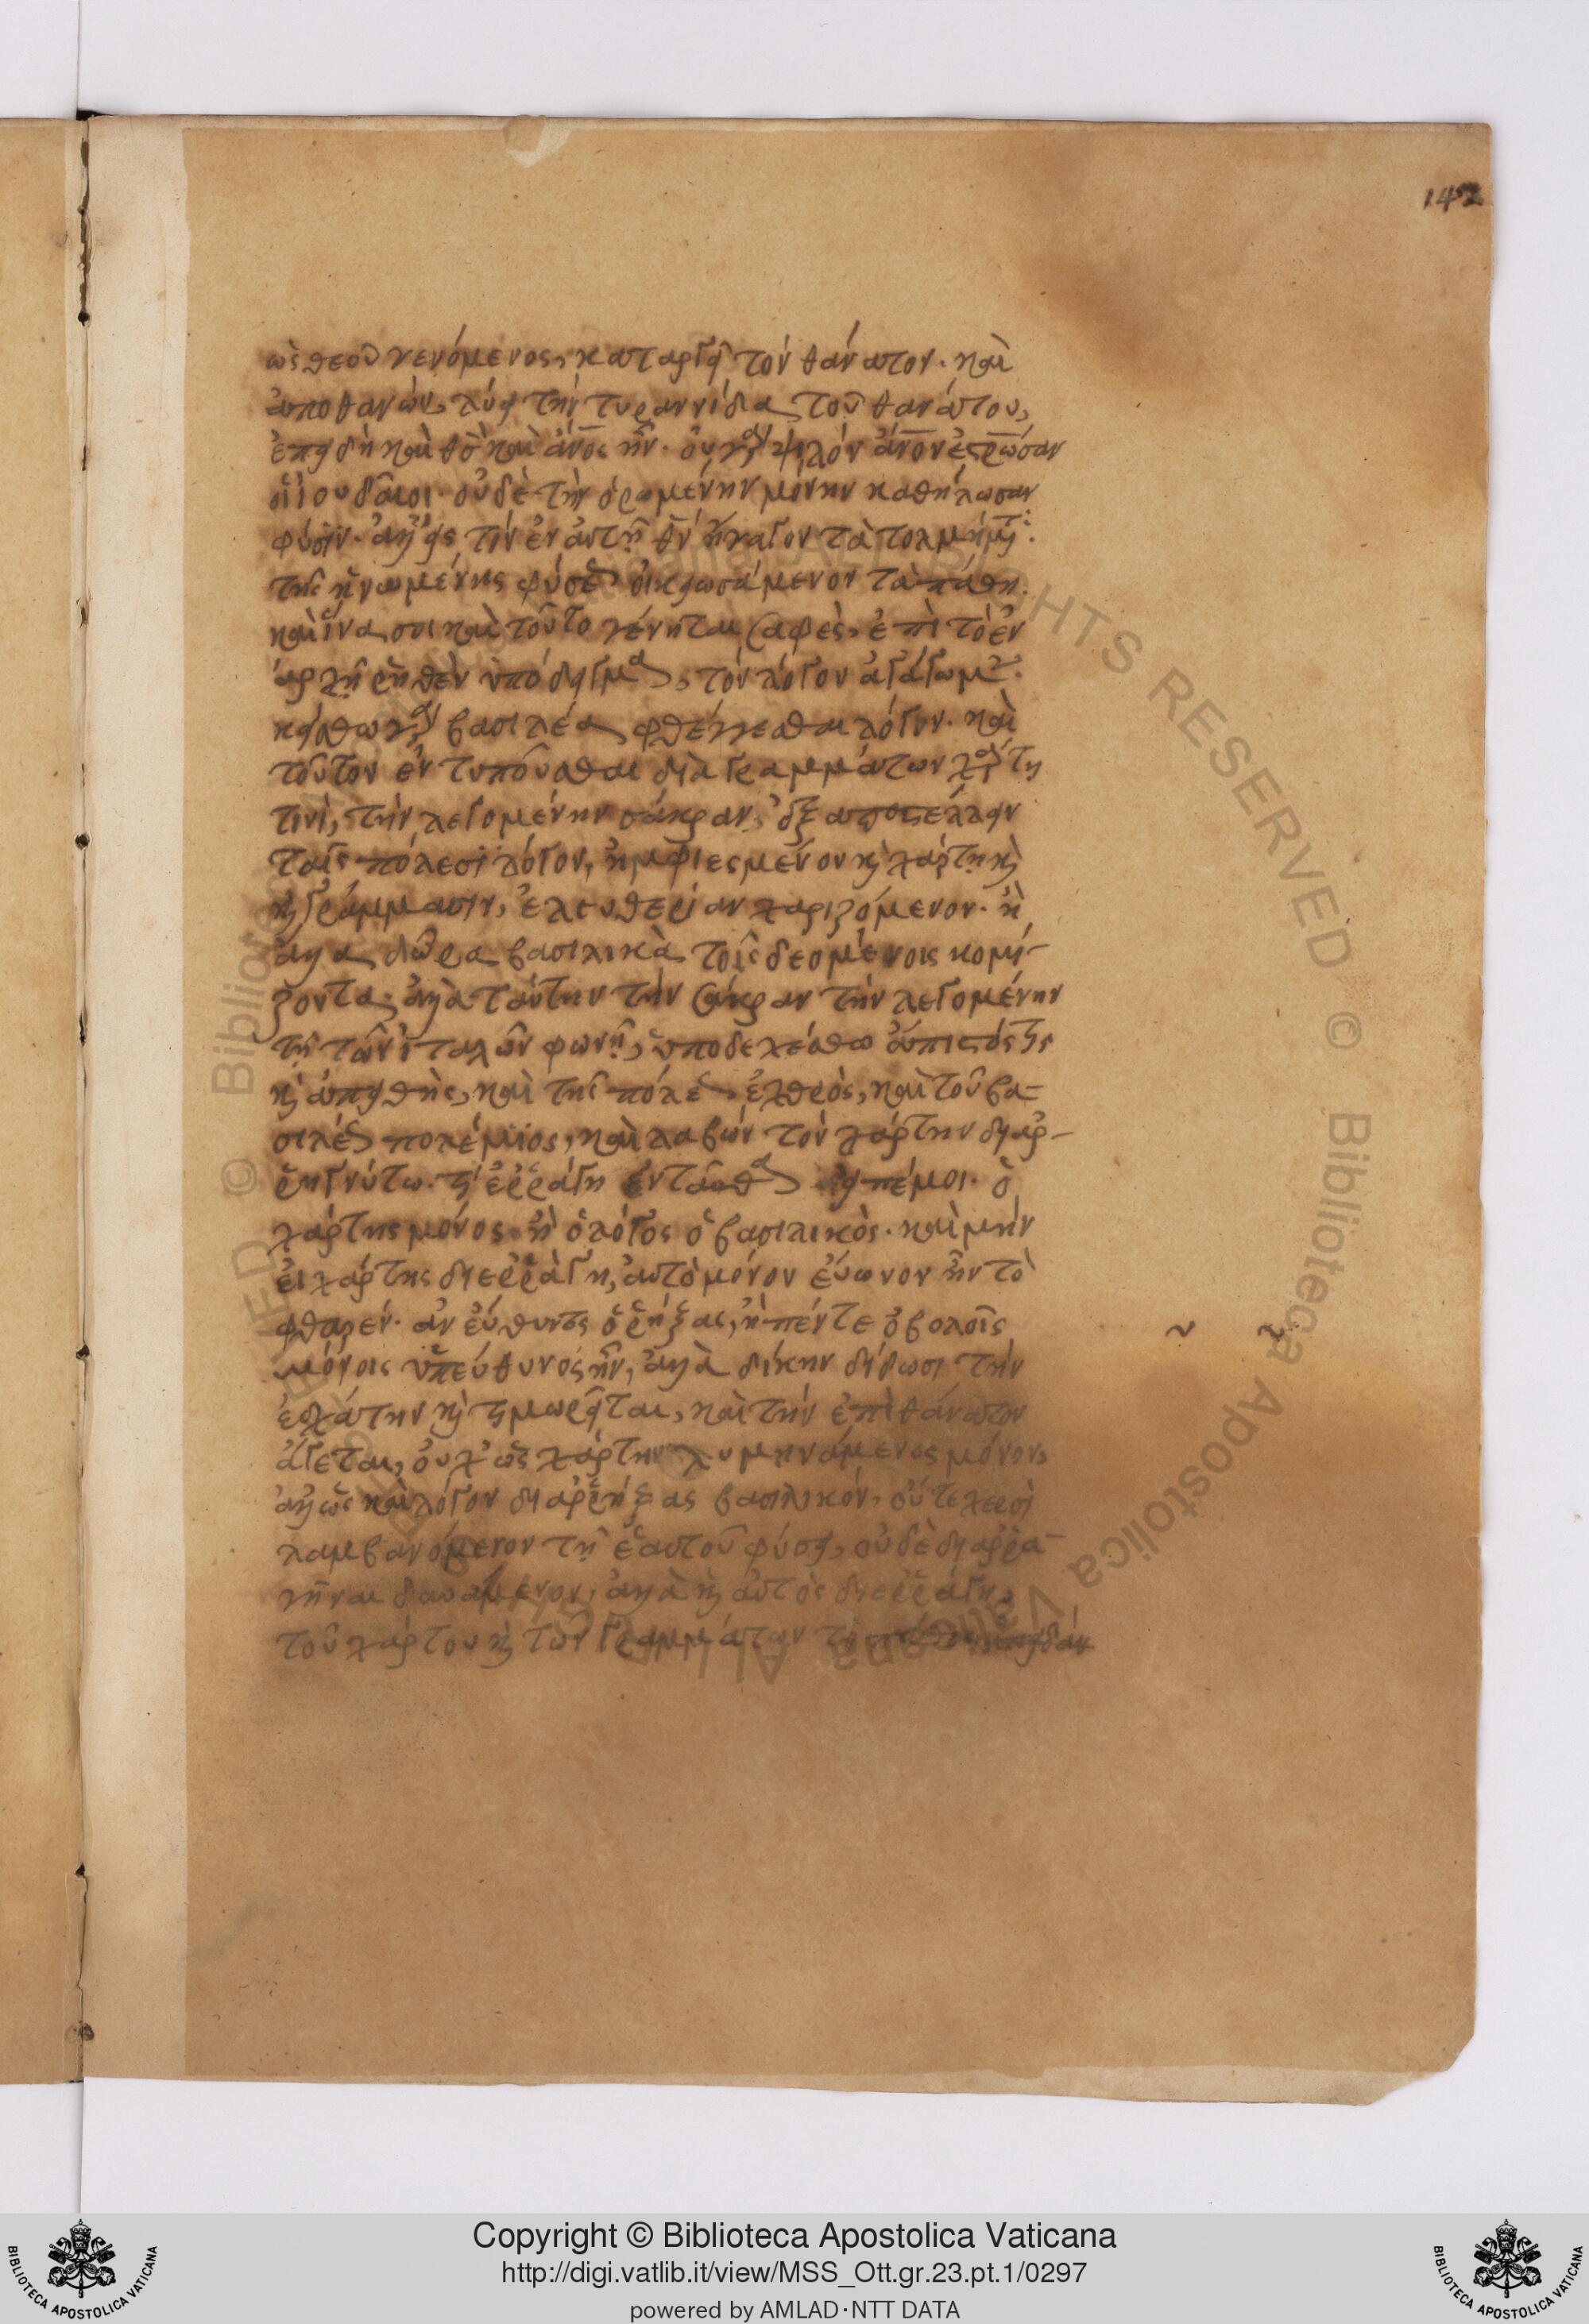 142
ὡς θεοῦ γενόμενος, καταργεῖ τὸν θάνατον. καὶ
ἀποθανὼν, λύει τὴν τυραννίδα τοῦ θανάτου,
ἐπειδὴ καὶ θς καὶ ἄνος ἦν. οὐ γὰρ ψιλὸν ἄνον ἐσρωσαν
οἱ ἰουδαῖοι. οὐδὲ τὴν ὁρωμένην μόνην καθήλωσαν
φύσιν. ἀλλ' εἰς τὸν ἐν αὐτῇ θν ἤγαγον τὰ τολμήμτ:
τῆς ἡνωμένης φύσεως οἰκειωσάμενον τὰ πάθη.
καὶ ἵνα σοι καὶ τοῦτο γένηται σαφὲς, ἐπὶ τὸ ἐν
ἀρχῇ ῥηθὲν ὑπόδειγμα, τὸν λόγον ἀγάγωμεν.
κείσθω γὰρ βασιλέα φθέγγεσθαι λόγον. καὶ
τοῦτον ἐντυποῦσθαι διὰ γραμμάτων χάρτῃ
τινὶ, τὴν λεγομένην σάκραν, ἐξαποστέλλειν
ταῖς πόλεσι λόγον, ἠμφιεσμένον καὶ χάρτη καὶ
καὶ γράμμασιν, ἐλευθερίαν χαριζόμενον. ἢ
ἄλλα δῶρα βασιλικὰ τοῖς δεομένοις κομί-
ζοντα. ἀλλὰ ταύτην τὴν σάκραν τὴν λεγομένην
τῇ τῶν ἰταλῶν φωνῇ, ὑποδεχέσθω ἄπιστός τις
καὶ ἀπειθὴς, καὶ τῆς πόλεως ἐχθρὸς, καὶ τοῦ βα-
σιλέως πολέμιος, καὶ λαβὼν τὸν χάρτην διαρ-
ρηγνύτω. τί ἐρράγη ἐνταῦθα εἰπέ μοι. ὁ
χάρτης μόνος. ἢ ὁ λόγος ὁ βασιλικὸς. καὶ μὴν
εἰ χάρτης διερράγη, αὐτὸ μόνον εὔωνον ἦν τὸ
φθαρέν. ἀνεύθυνος ὁ ῥήξας, ἢ πέντε ὀβολοῖς
μόνοις ὑπεύθυνος ἦν, ἀλλὰ δίκην δίδωσι τὴν
ἐσχάτην καὶ τιμωρεῖται, καὶ τὴν ἐπὶ θάνατον
ἄγεται, οὐχ ὡς χάρτην λυμηνάμενος μόνον,
ἀλλ' ὡς καὶ λόγον διαρρήξας βασιλικόν, οὔτε χερσὶ
λαμβανόμενον τῇ ἑαυτοῦ φύσει, οὐδὲ διαρρα-
γῆναι δυνάμενον, ἀλλὰ καὶ αὐτὸς διερράγη,
τοῦ χάρτου καὶ τῶν γραμμάτων τὸ πάθος
Copyright © Biblioteca Apostolica Vaticana
http://digi.vatlib.it/view/MSS_Ott.gr.23.pt.1/0297
powered by AMLAD·NTT DATA